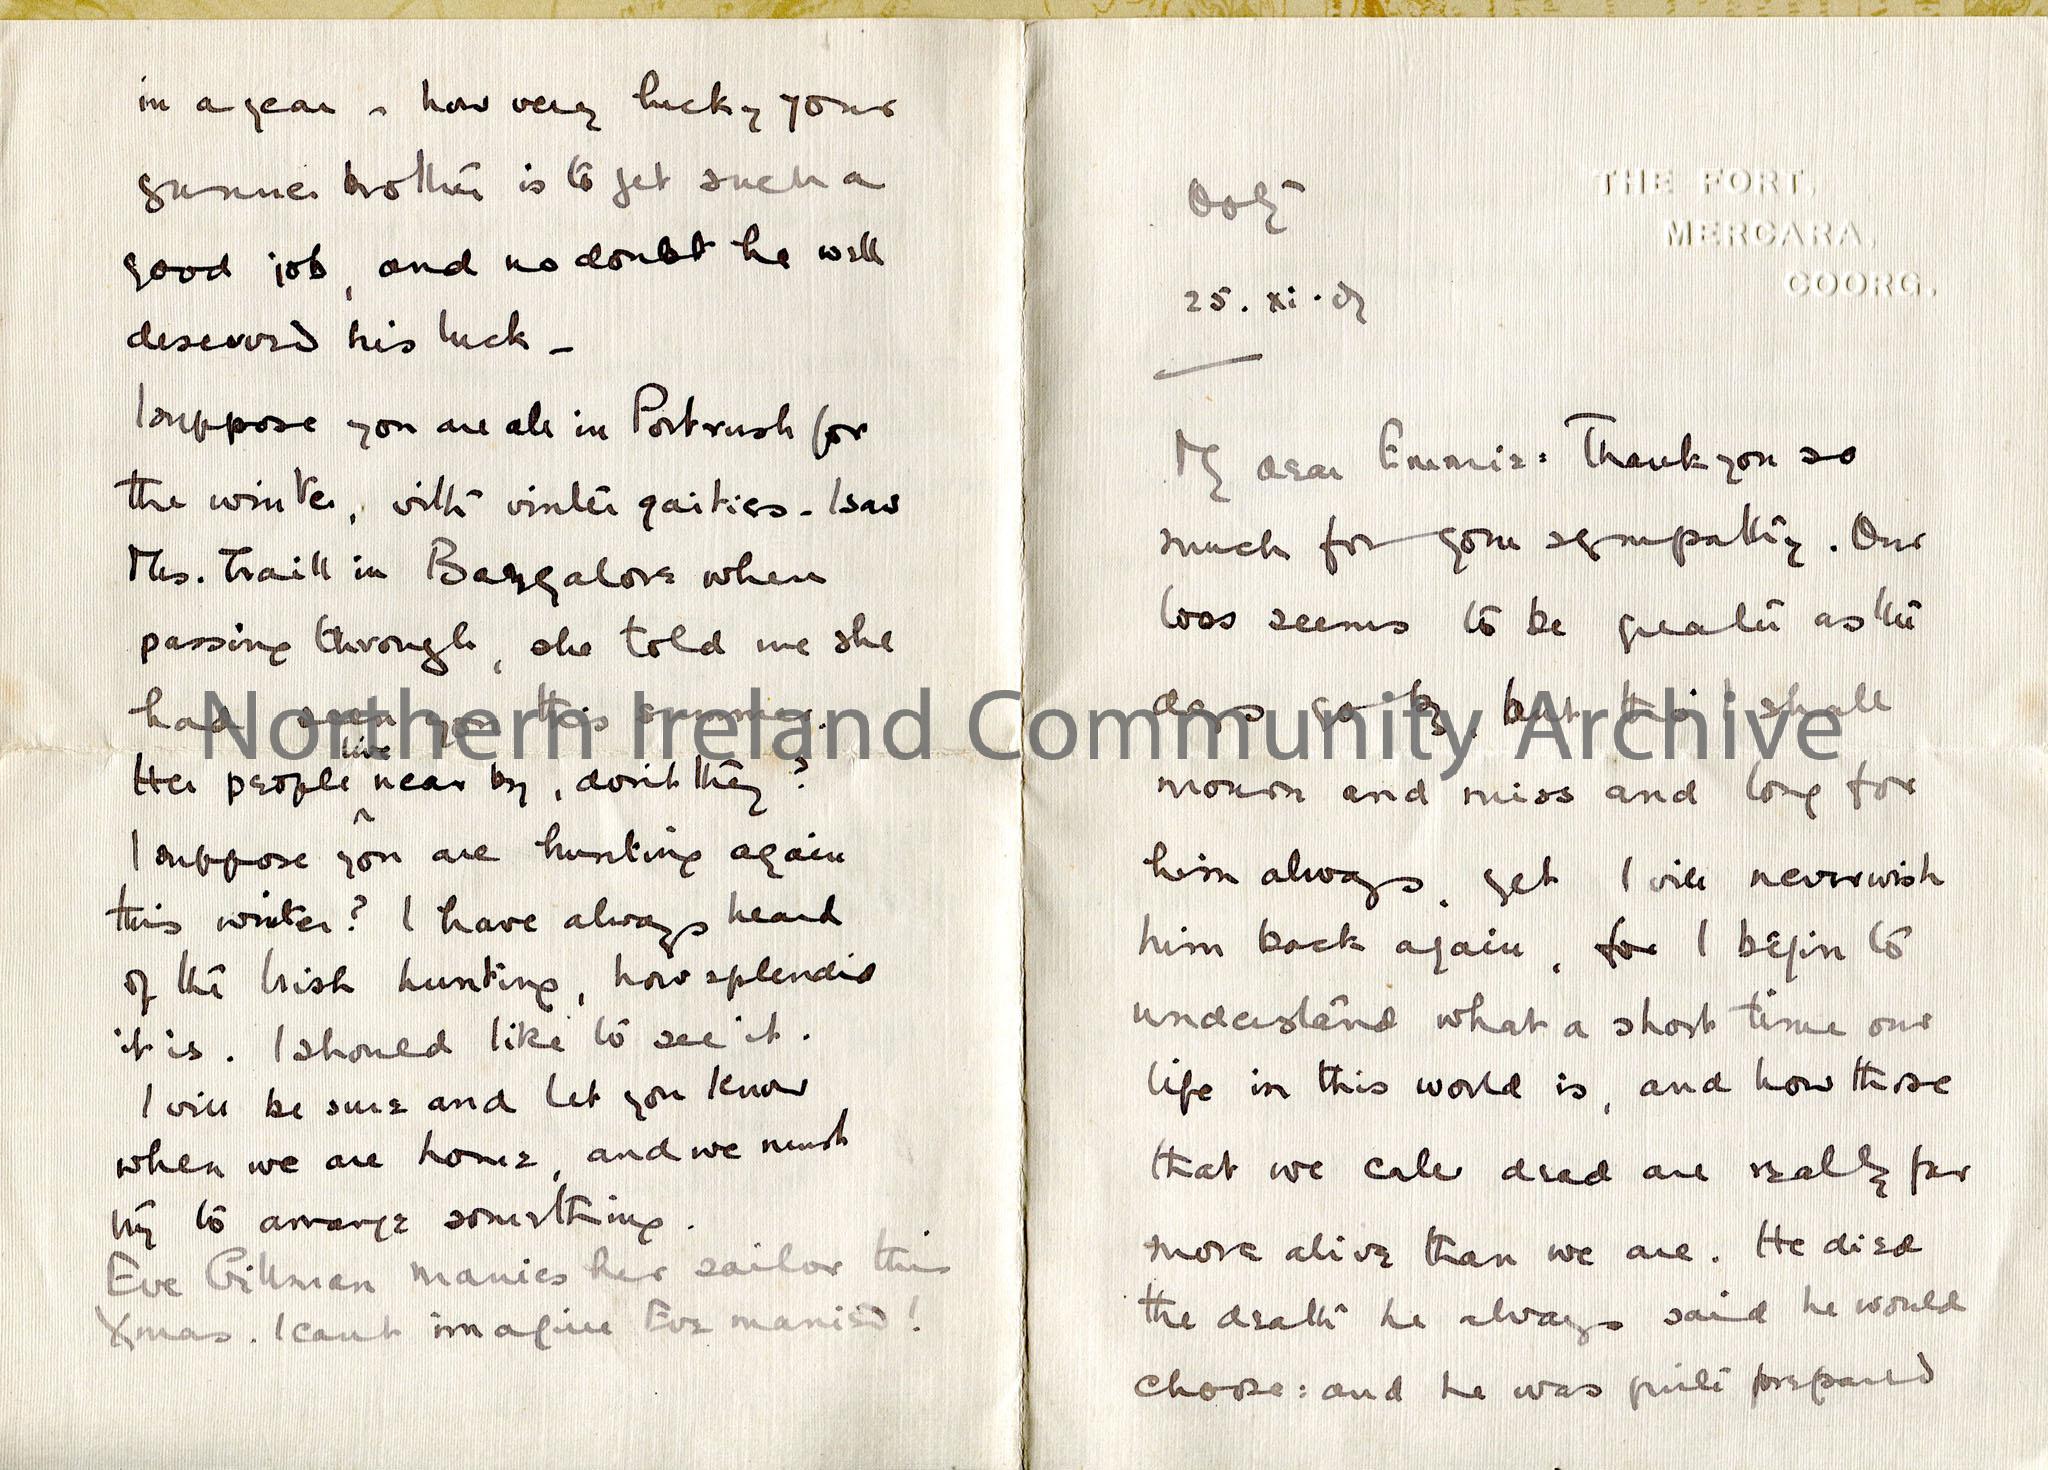 in a year - how very lucky your
gunner brother is to get such a
good job, and no doubt he will
deserved his luck -
I suppose you are all in Portrush for
the winter, with winter gaities - I saw
Mrs. Traill in Bangalore when
passing through, she told me she
had seen you this summer.
live
Her people near by, don't they?
I suppose you are hunting again
this winter? I have always heard
of the Irish hunting, how splendid
it is. I should like to see it.
I will be sure and let you know
when we are home, and we must
try to arrange something.
Eve Gillman marries her sailor this
Xmas. I can't imagine Eve married!
THE FORT,
MERCARA,
COORG.
25.xi.07
My dear Emmie: Thank you so
much for your sympathy. Our
loss seems to be greater as the
days go by, but tho' I shall
mourn and miss and long for
him always, yet I will never wish
him back again, for I begin to
understand what a short time our
life in this world is, and how those
that we call dead are really far
more alive than we are. He died
the death he always said he would
choose: and he was quite prepared
Northern Ireland Community Archive